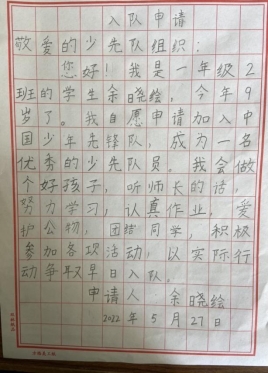 入队申请
敬爱的少先队组织：
您好！我是一年级2
班的学生余晓绘，今年9
岁了。我自愿申请加入中
国少年先锋队，成为一名
优秀的少先队员。我会做
个好孩子，听师长的话，
努力学习，认真作业，爱
护公物，团结同学，积极
参加各项活动，以实际行
动争取早日入队。
申请人 余晓绘
2022年5月27日